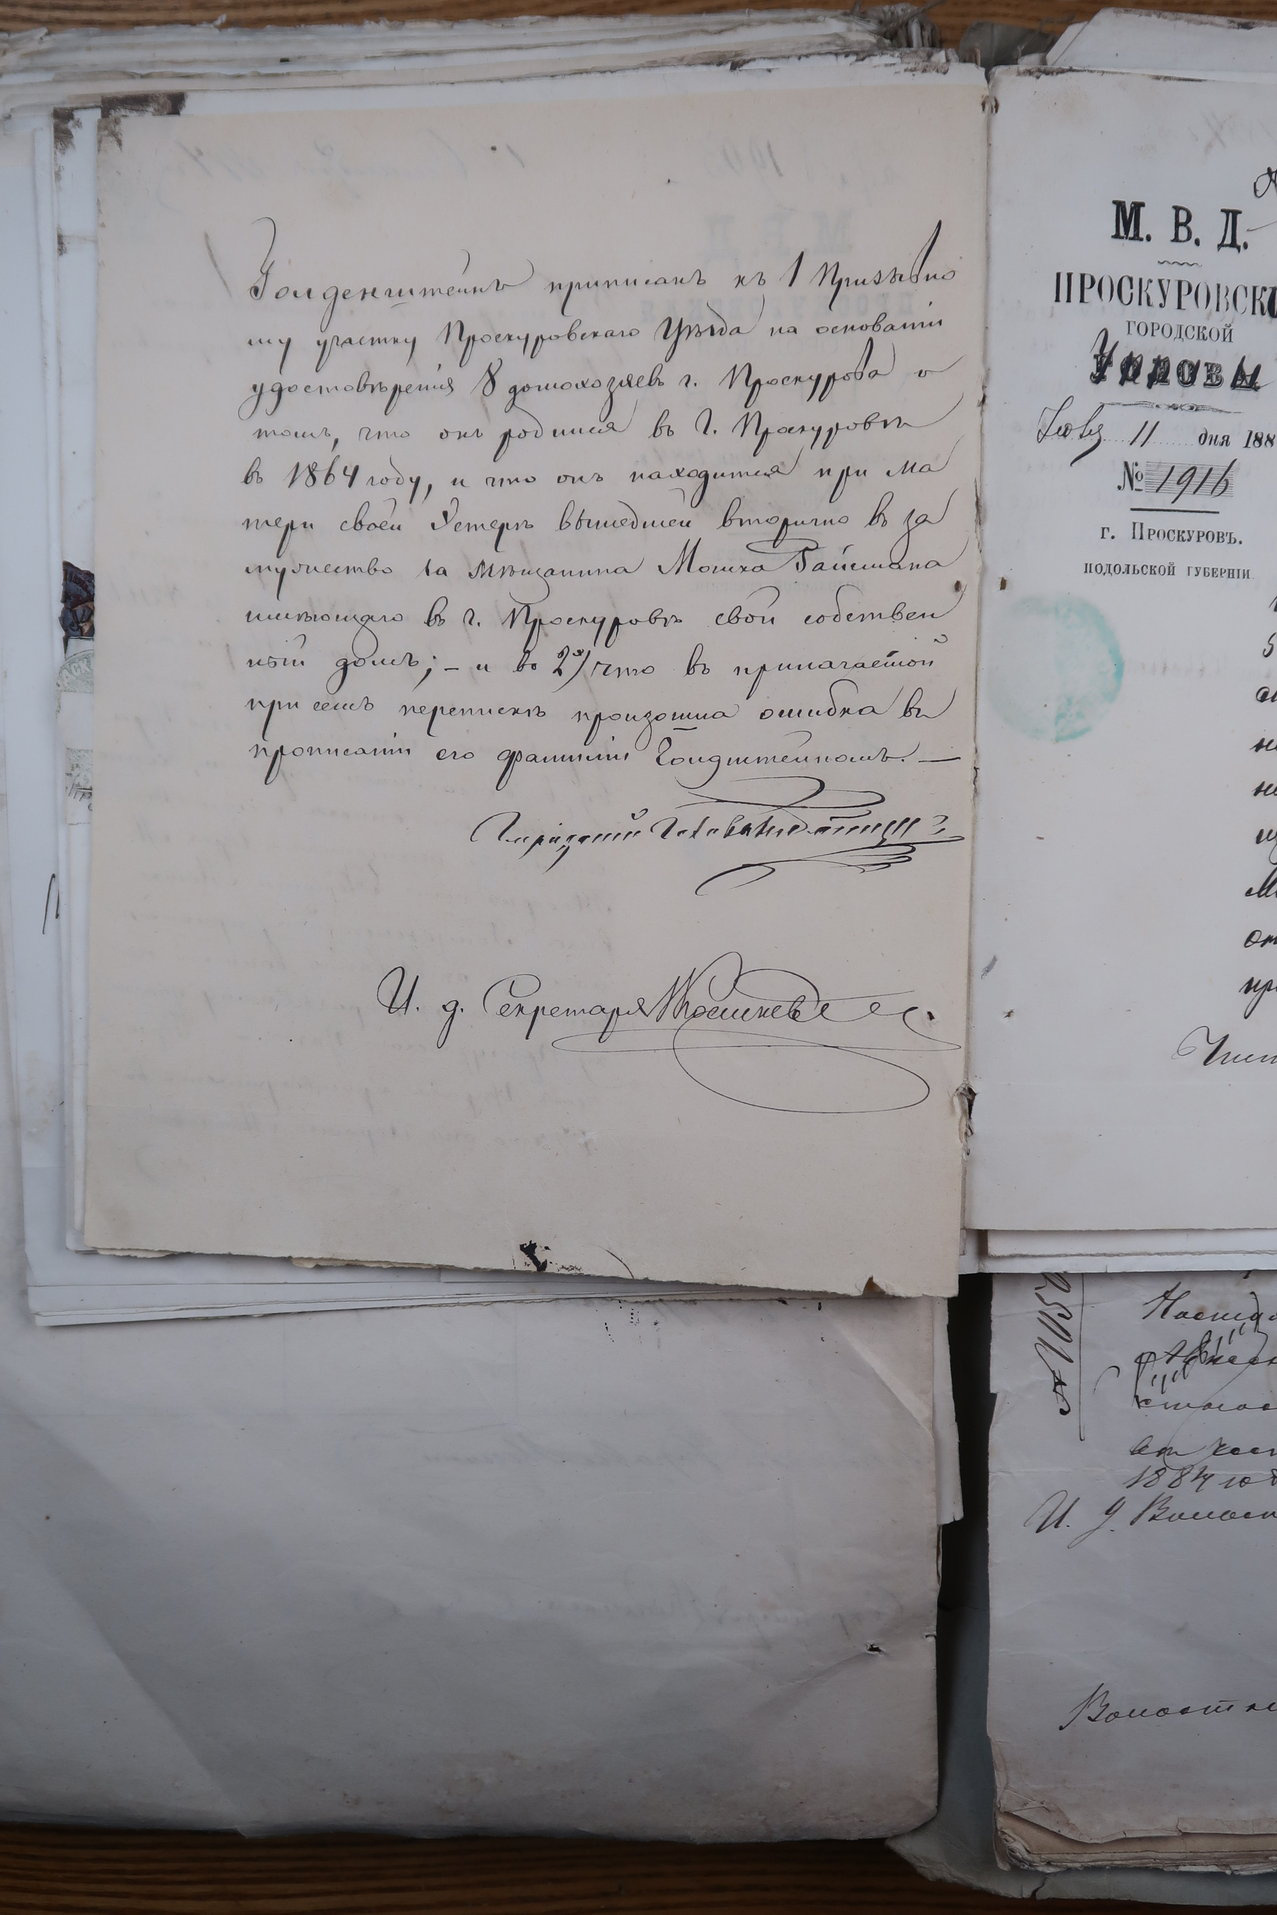 Голденштейнъ приписанъ къ 1 Призывно
му участку Проскуровскаго Уѣзда на основаніи
удостовѣренія 8 домохозяевъ г. Проскурова о
томъ, что онъ родился въ г. Проскуровѣ
въ 1864 году, и что онъ находится при ма
тери своей Эстеръ вышедшей вторично въ за
мужество за мѣщанина Мошка Вайсмана
имѣющаго въ г. Проскуровѣ свой собствен
ный домъ; – и въ 2х/ что въ прилагаемой
при семъ перепискѣ произошла ошибка въ
прописаніи его фамиліи Голдштейномъ. —
Городской Голова
И. д. Секретаря
М. В. Д.
ПРОСКУРОВСК
ГОРОДСКОЙ
11 дня 188
№ 1916
г. Проскуровъ.
ПОДОЛЬСКОЙ ГУБЕРНІИ
1884 го
И. д. Волост